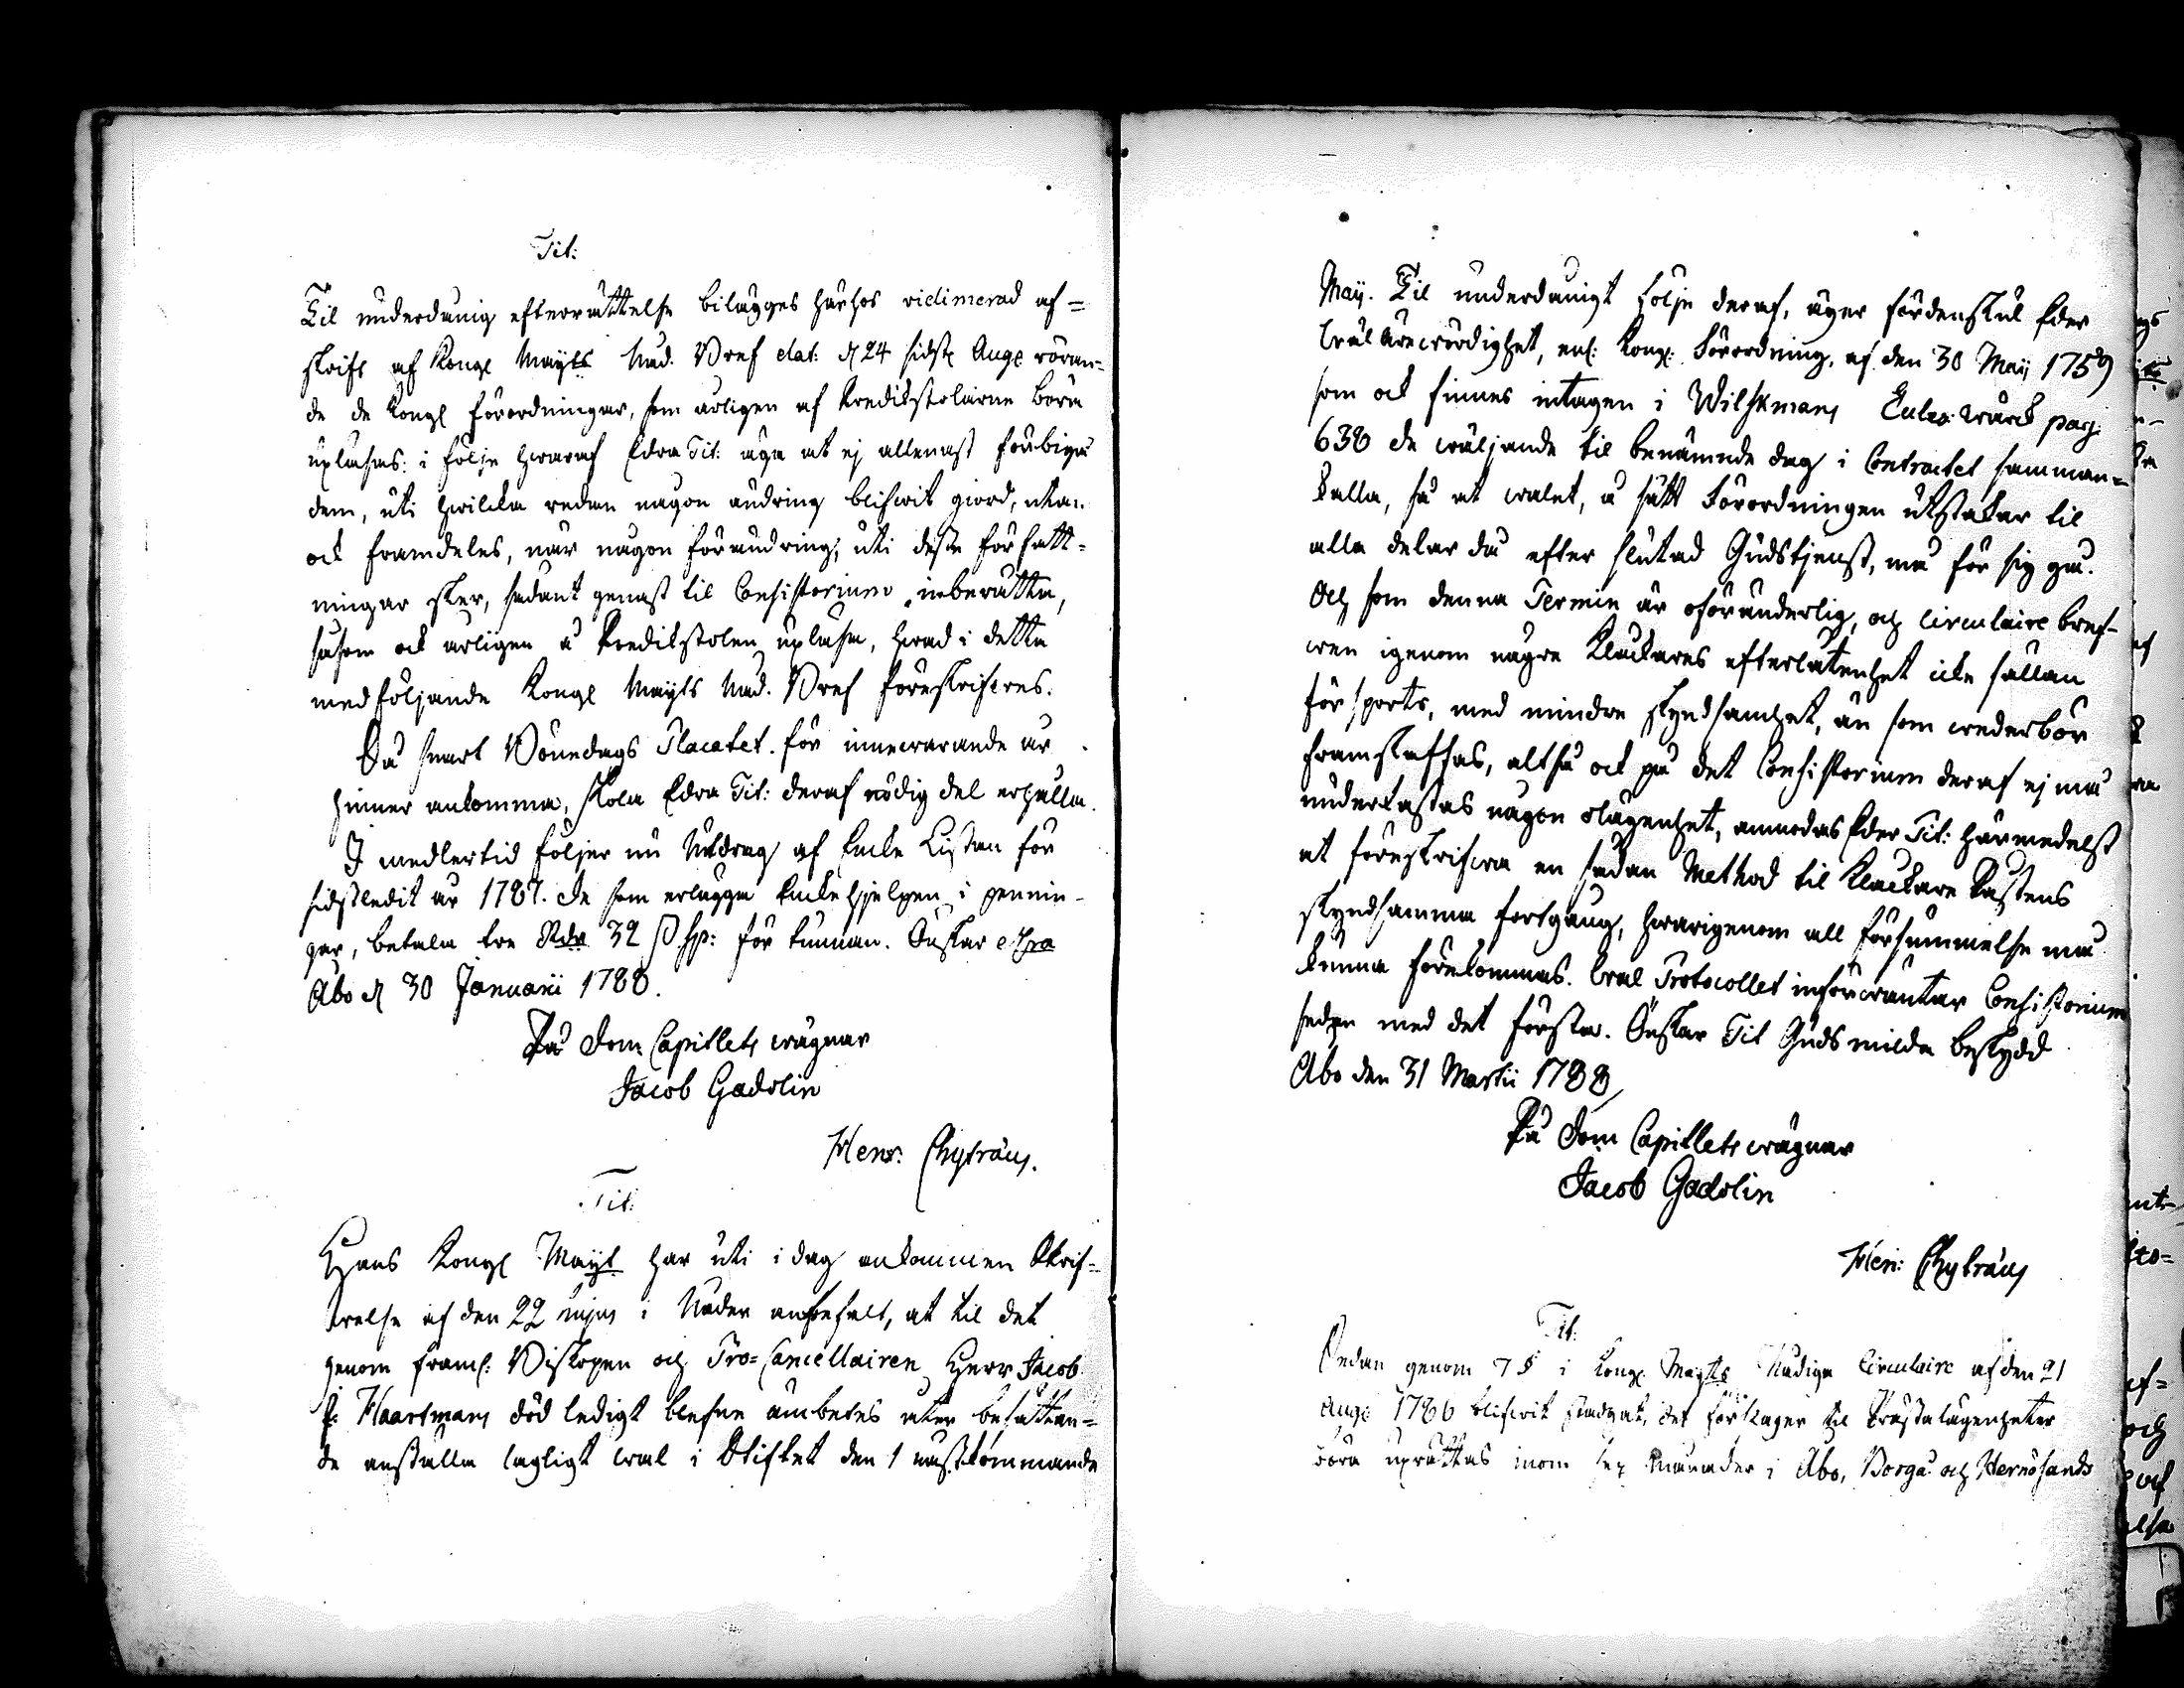 Tit:
Til underdånig efterrättelse bilägges härhos vidimerad af=
skrift af Kongl Mayts Nåd. Bref dat: d 24 sidstl Aug: röran=
de de Kongl Förordningar, som årligen af Predikstolarne böra
upläsas: i följe hwaraf Edra Tit: äga at ej allenast förbigå
dem, uti hwilcka redan någon ändring blifwit giord, utan
ock framdeles, når någon förändring, uti desse författ=
ningar sker, sådant genast til Consistorium inberätta,
såsom ock årligen å Predikstolen upläsa, hwad i detta
medföljande Kongl Mayts Nåd. Bref föreskrifwes.
Så snart Bönedags Placatet för innewarande år
hinner ankomma, skola Edra Tit: deraf nödig del erhålla.
I medlertid följer nu Utdrag af Encke Listan för
sidstledit år 1787. De som erlägga Enckehjelpen i pennin-
gar, betala tre Rdr 32 ß sp: för tunnan. Önskar etra
Åbo d 30 Januarii 1788.
På Dom Capitlets wägnar
Jacob Gadolin
Henr: Chytræus.
Tit:
Hans Kongl Mayt har uti i dag ankommen Skrif=
welse af den 22 hujus i Nåder anbefalt, at til det
genom framl: Biskopen och Pro=Cancellairen Herr Jacob
Haartmans död ledigt blefne ämbetes åter besättan=
de anställa lagligt wal i Stiftet den 1 nästkommande
Maij. Til underdånigt följe deraf, äger fördenskul Eder
Wälärewördighet, enl: Kongl: Förordning, af den 30 Maij 1759
som ock finnes intagen i Wilskmans Eccles: wärck pag:
638 de wäljande til benämnde dag i Contractet samman=
kalla, så at walet, å sätt Förordningen utstakar til
alla delar då efter slutad Gudstjenst, må för sig gå.
Och som denna Termin är oföränderlig, och Circulaire bref-
wen igenom någre Klockares efterlåtenhet icke sällan
försports, med mindre skyndsamhet, än som wederbör
framskaffas, altså ock på det Consistorium deraf ej må
underkastas någon olägenhet, anmodas Eder Tit: härmedelst
at föreskrifwa en sådan Method til Klockare Kastens
skyndsamma fortgång, hwarigenom all försummelse må
kunna förekommas. Wal Protocollet införwäntar Consistorium
sedan med det första. Önskar Tit Guds milda beskydd
Åbo den 31 Martii 1788
På Dom Capitlets wägnar
Jacob Gadolin
Hen: Chytræus
Tit:
Sedan genom 7 § i Kongl Mayts Nådiga Circulaire af den 21
Aug: 1786 blifwit stadgat, det förslager til Prästalägenheter
böra uprättas inom sex månader i Åbo, Borgå och Hernösands